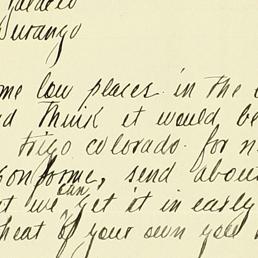 Durango
me low places in the
d think it would be
trigo colorado. for
some, send about
t we can get it in early
heat of your own you